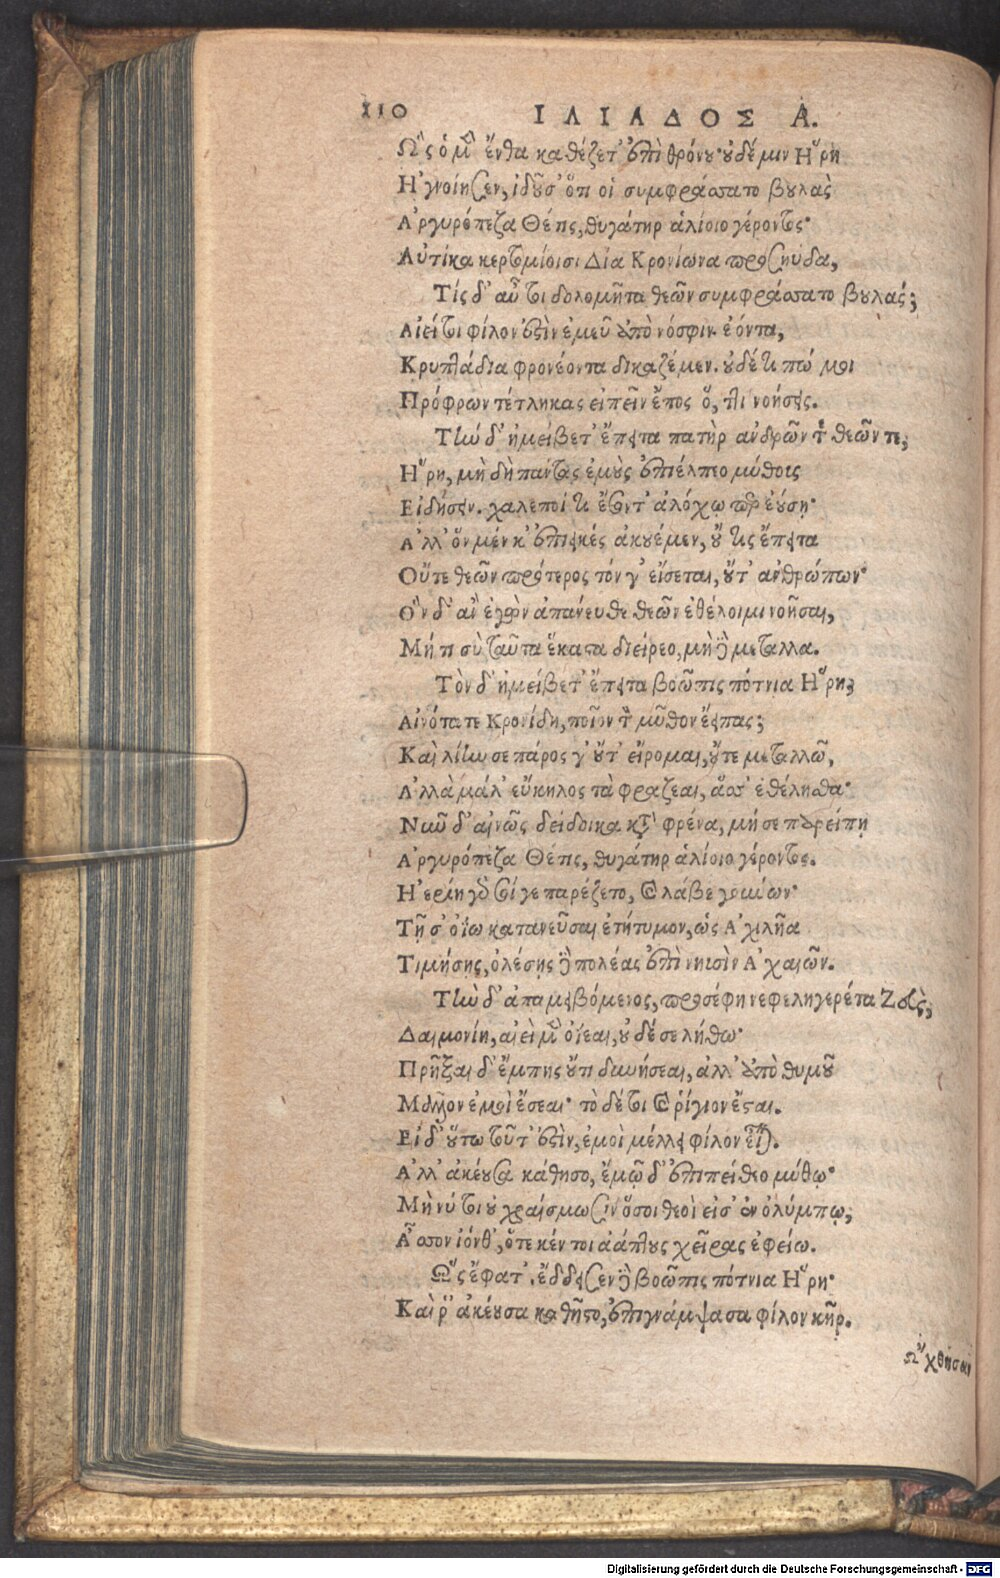 110 ΙΛΙΑΔΟΣ Α.
Ὣς ὁ μὲν ἔνθα καθέζετ' ἐπὶ θρόνου· οὐδέ μιν Ἥρη
Ἠγνοίησεν, ἰδοῦσ' ὅτι οἱ συμφράσσατο βουλὰς
Ἀργυρόπεζα Θέτις, θυγάτηρ ἁλίοιο γέροντος·
Αὐτίκα κερτομίοισι Δία Κρονίωνα προσηύδα,
Τίς δ' αὖ τοι δολομῆτα θεῶν συμφράσσατο βουλάς;
Αἰεί τοι φίλον ἐστὶν ἐμεῦ ἀπὸ νόσφιν ἐόντα,
Κρυπτάδια φρονέοντα δικαζέμεν. οὐδέ τι πώ μοι
Πρόφρων τέτληκας εἰπεῖν ἔπος ὅ, ττι νοήσεις.
Τὴν δ' ἠμείβετ' ἔπειτα πατὴρ ἀνδρῶν τὲ θεῶν τε,
Ἥρη, μὴ δὴ πάντας ἐμοὺς ἐπιέλπεο μύθους
Εἰδήσειν. χαλεποί τι ἔσοντ' ἀλόχῳ περ ἐούσῃ·
Ἀλλ' ὃν μέν κ' ἐπιεικές ἀκουέμεν, οὔ τις ἔπειτα
Οὔτε θεῶν πρότερος τόν γ' εἴσεται, οὔτ' ἀνθρώπων·
Ὃν δ' ἂν ἐγὼν ἀπάνευθε θεῶν ἐθέλοιμι νοῆσαι,
Μή τι σὺ ταῦτα ἕκαστα διείρεο, μὴ δὲ μετάλλα.
Τὸν δ' ἠμείβετ' ἔπειτα βοῶπις πότνια Ἥρη,
Αἰνότατε Κρονίδη, ποῖον τὸν μῦθον ἔειπας;
Καὶ λίην σε πάρος γ' οὔτ' εἴρομαι, οὔτε μεταλλῶ,
Ἀλλὰ μάλ' εὔκηλος τὰ φράζεαι, ἅσσ' ἐθέλησθα·
Νῦν δ' αἰνῶς δείδοικα κατὰ φρένα, μή σε παρείπῃ
Ἀργυρόπεζα Θέτις, θυγάτηρ ἁλίοιο γέροντος.
Ἠερίη γὰρ σοί γε παρέζετο, καὶ λάβε γούνων·
Τῇ σ' ὀΐω κατανεῦσαι ἐτήτυμον, ὡς Ἀχιλῆα
Τιμήσῃς, ὀλέσῃς δὲ πολέας ἐπὶ νηυσὶν Ἀχαιῶν.
Τὴν δ' ἀπαμειβόμενος, προσέφη νεφεληγερέτα Ζεὺς,
Δαιμονίη, αἰεὶ μὲν ὀΐεαι, οὐδέ σε λήθω·
Πρῆξαι δ' ἔμπης οὔτι δυνήσεαι, ἀλλ' ἀπὸ θυμοῦ
Μᾶλλον ἐμοὶ ἔσεαι· τὸ δέ τοι καὶ ῥίγιον ἔσται.
Εἰ δ' οὕτω τοῦτ' ἐστὶν, ἐμοὶ μέλλει φίλον εἶναι.
Ἀλλ' ἀκέουσα κάθησο, ἐμῷ δ' ἐπιπείθεο μύθῳ·
Μὴ νύ τοι οὐ χραίσμωσιν ὅσοι θεοὶ εἰσ' ἐν ὀλύμπῳ,
Ἆσσον ἰόνθ', ὅτε κέν τοι ἀάπτους χεῖρας ἐφείω.
Ὣς ἔφατ'. ἔδδεισεν δὲ βοῶπις πότνια Ἥρη·
Καί ῥ' ἀκέουσα καθῆστο, ἐπιγνάμψασα φίλον κῆρ.
Ὤχθησαν
Digitalisierung gefördert durch die Deutsche Forschungsgemeinschaft - DFG